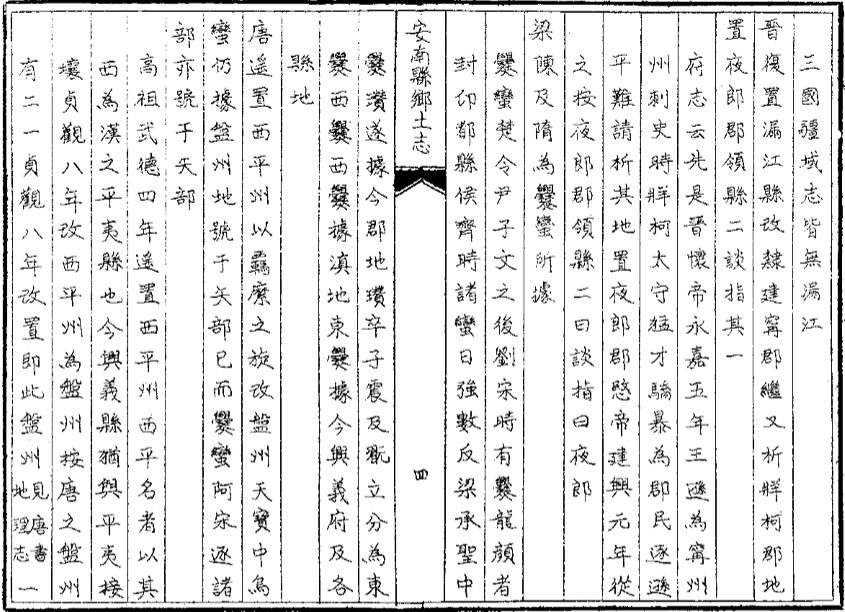 三國疆域志皆無漏江
晉復置漏江縣改隸建寧郡繼又析牂柯郡地
置夜郎郡領縣二談指其一
府志云先是晉懷帝永嘉五年王遜為寧州
州刺史時牂柯太守猛才驕暴為郡民逐遜
平難請析其地置夜郎郡愍帝建興元年從
之按夜郎郡領縣二曰談指曰夜郎
梁陳及隋為爨蠻所據
爨蠻楚令尹子文之後劉宋時有爨龍顏者
封邛都縣侯齊時諸蠻日強數反梁承聖中
安南縣鄉土志
四
爨瓚遂據今郡地瓚卒子震及翫立分為東
爨西爨西爨據滇地東爨據今興義府及各
縣地
唐遥置西平州以羈縻之旋改盤州天寶中烏
蠻仍據盤州地號于矢部已而爨蠻阿宋逐諸
部亦號于矢部
高祖武德四年遥置西平州西平名者以其
西為漢之平夷縣也今興義縣猶與平夷接
壤貞觀八年改西平州為盤州按唐之盤州
有二一貞觀八年改置即此盤州見唐書地理志一